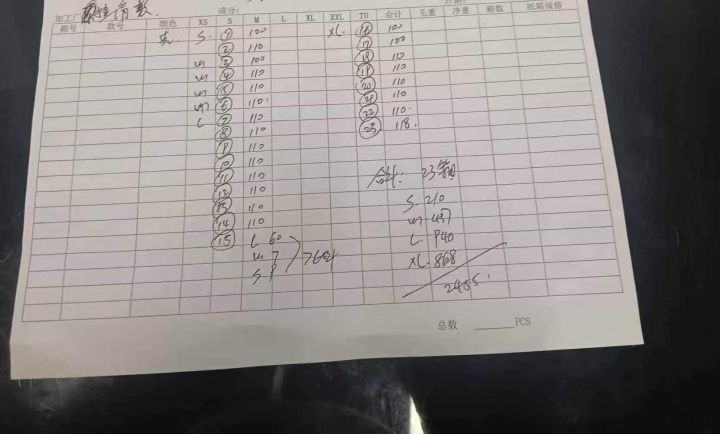 成分:
加工厂
箱号 款号 颜色 XS S M L XL XXL TU 合计 毛重 净重 箱数 纸箱规格
S. ① 100 XL. ⑯ 100
② 110 ⑰ 100
m ③ 100 ⑱ 110
m ④ 110 ⑲ 110
m ⑤ 110 ⑳ 110
m ⑥ 110 ㉑ 110
L ⑦ 110 ㉒ 110
⑧ 110 ㉓ 118
⑨ 110
⑩ 110
⑪ 110
⑫ 110
⑬ 110
⑭ 110
⑮ L 60
m 7
S 9
合计: 23箱
S. 210
m 437
L. 940
XL. 868
2455
总数 ______PCS